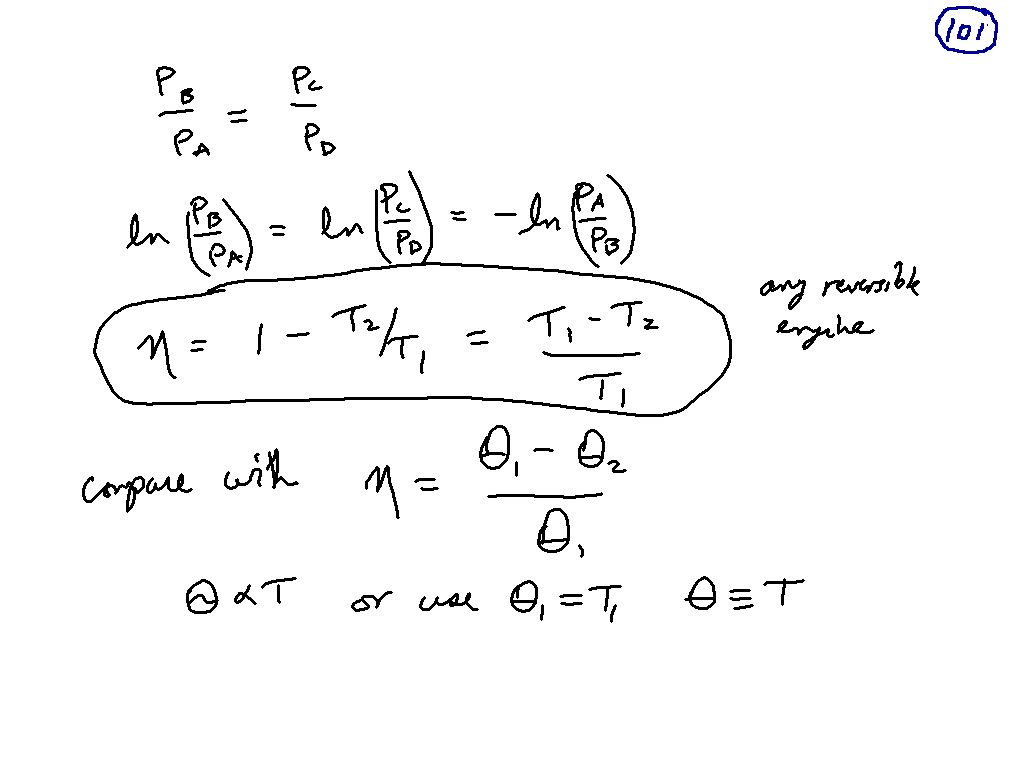 101
P_B / P_A = P_C / P_D
ln (P_B / P_A) = ln (P_C / P_D) = - ln (P_A / P_B)
η = 1 - T_2 / T_1 = (T_1 - T_2) / T_1 any reversible engine
compare with η = (θ_1 - θ_2) / θ_1
θ ∝ T or use θ_1 = T_1 θ ≡ T